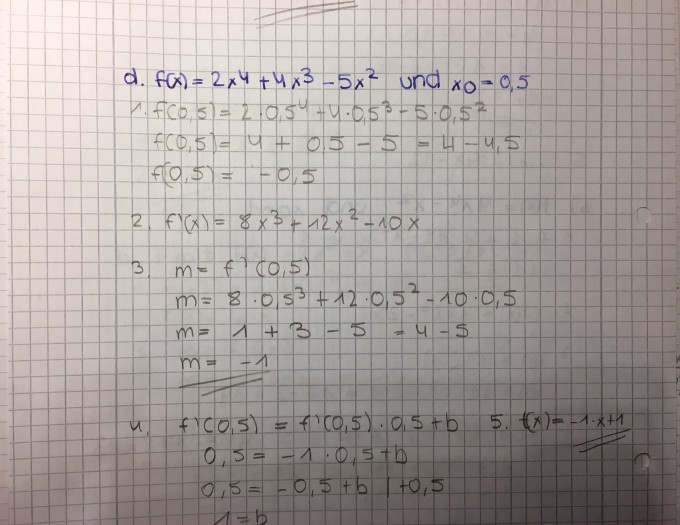 d. f(x) = 2x⁴ + 4x³ - 5x² und x0 = 0,5
1. f(0,5) = 2·0,5⁴ + 4·0,5³ - 5·0,5²
f(0,5) = 4 + 0,5 - 5 = 4 - 4,5
f(0,5) = -0,5
2. f'(x) = 8x³ + 12x² - 10x
3. m = f'(0,5)
m = 8·0,5³ + 12·0,5² - 10·0,5
m = 1 + 3 - 5 = 4 - 5
m = -1
4. f'(0,5) = f'(0,5)·0,5 + b 5. t(x) = -1·x+1
0,5 = -1·0,5 + b
0,5 = -0,5 + b | +0,5
1 = b